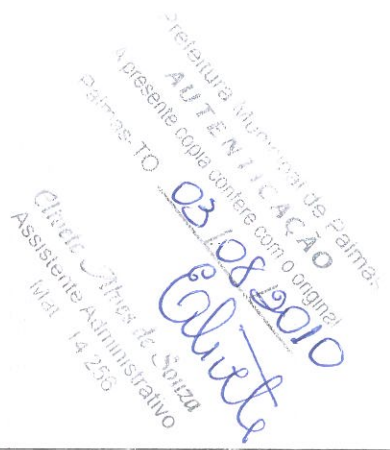 Prefeitura Municipal de Palmas
AUTENTICAÇÃO
A presente cópia confere com o original
Palmas-TO 03 08 2010
Alves de Souza
Assistente Administrativo
Mat 14 256